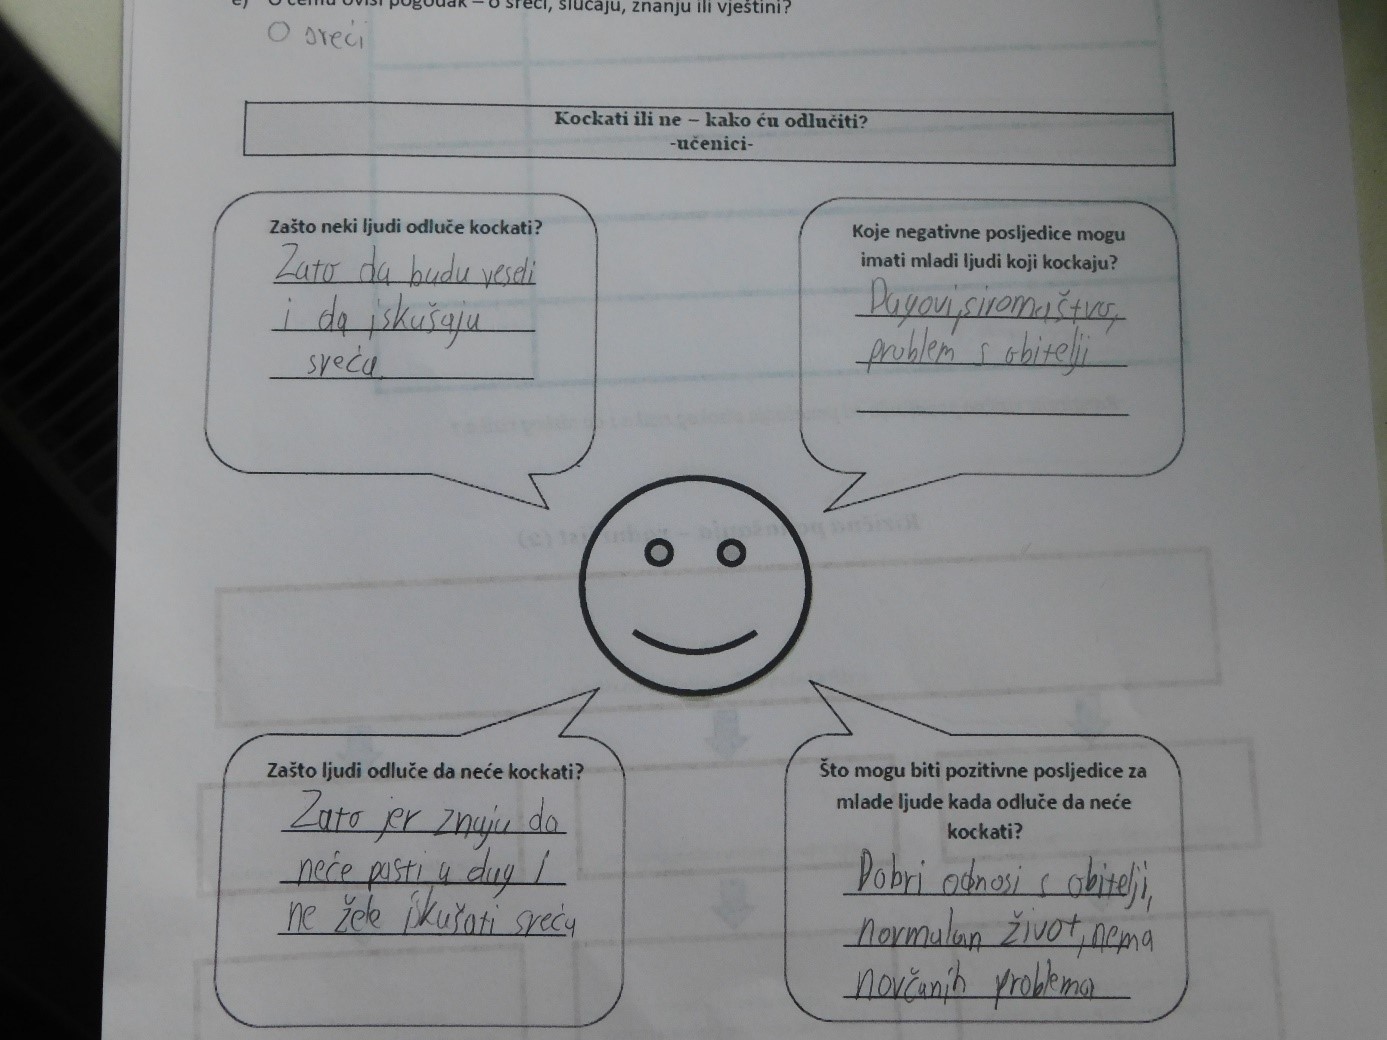 e) O čemu ovisi pogodak – o sreći, slučaju, znanju ili vještini?
O sreći
Kockati ili ne – kako ću odlučiti?
-učenici-
Zašto neki ljudi odluče kockati?
Zato da budu veseli
i da iskušaju
sreću
Koje negativne posljedice mogu
imati mladi ljudi koji kockaju?
Dugovi, siromaštvo,
problem s obitelji
Rizična ponašanja – radni list (2)
Zašto ljudi odluče da neće kockati?
Zato jer znaju da
neće pasti u dug i
ne žele iskušati sreću
Što mogu biti pozitivne posljedice za
mlade ljude kada odluče da neće
kockati?
Dobri odnosi s obitelji,
normalan život, nema
novčanih problema